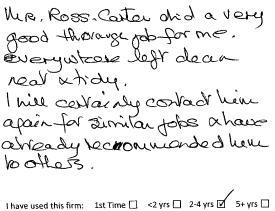 Mr. Ross-Carter did a very
good thorough job for me.
everywhere left clean
neat & tidy.
I will certainly contact him
again for similar jobs & have
already recommended him
to others.
I have used this firm: 1st Time <2 yrs 2-4 yrs 5+ yrs